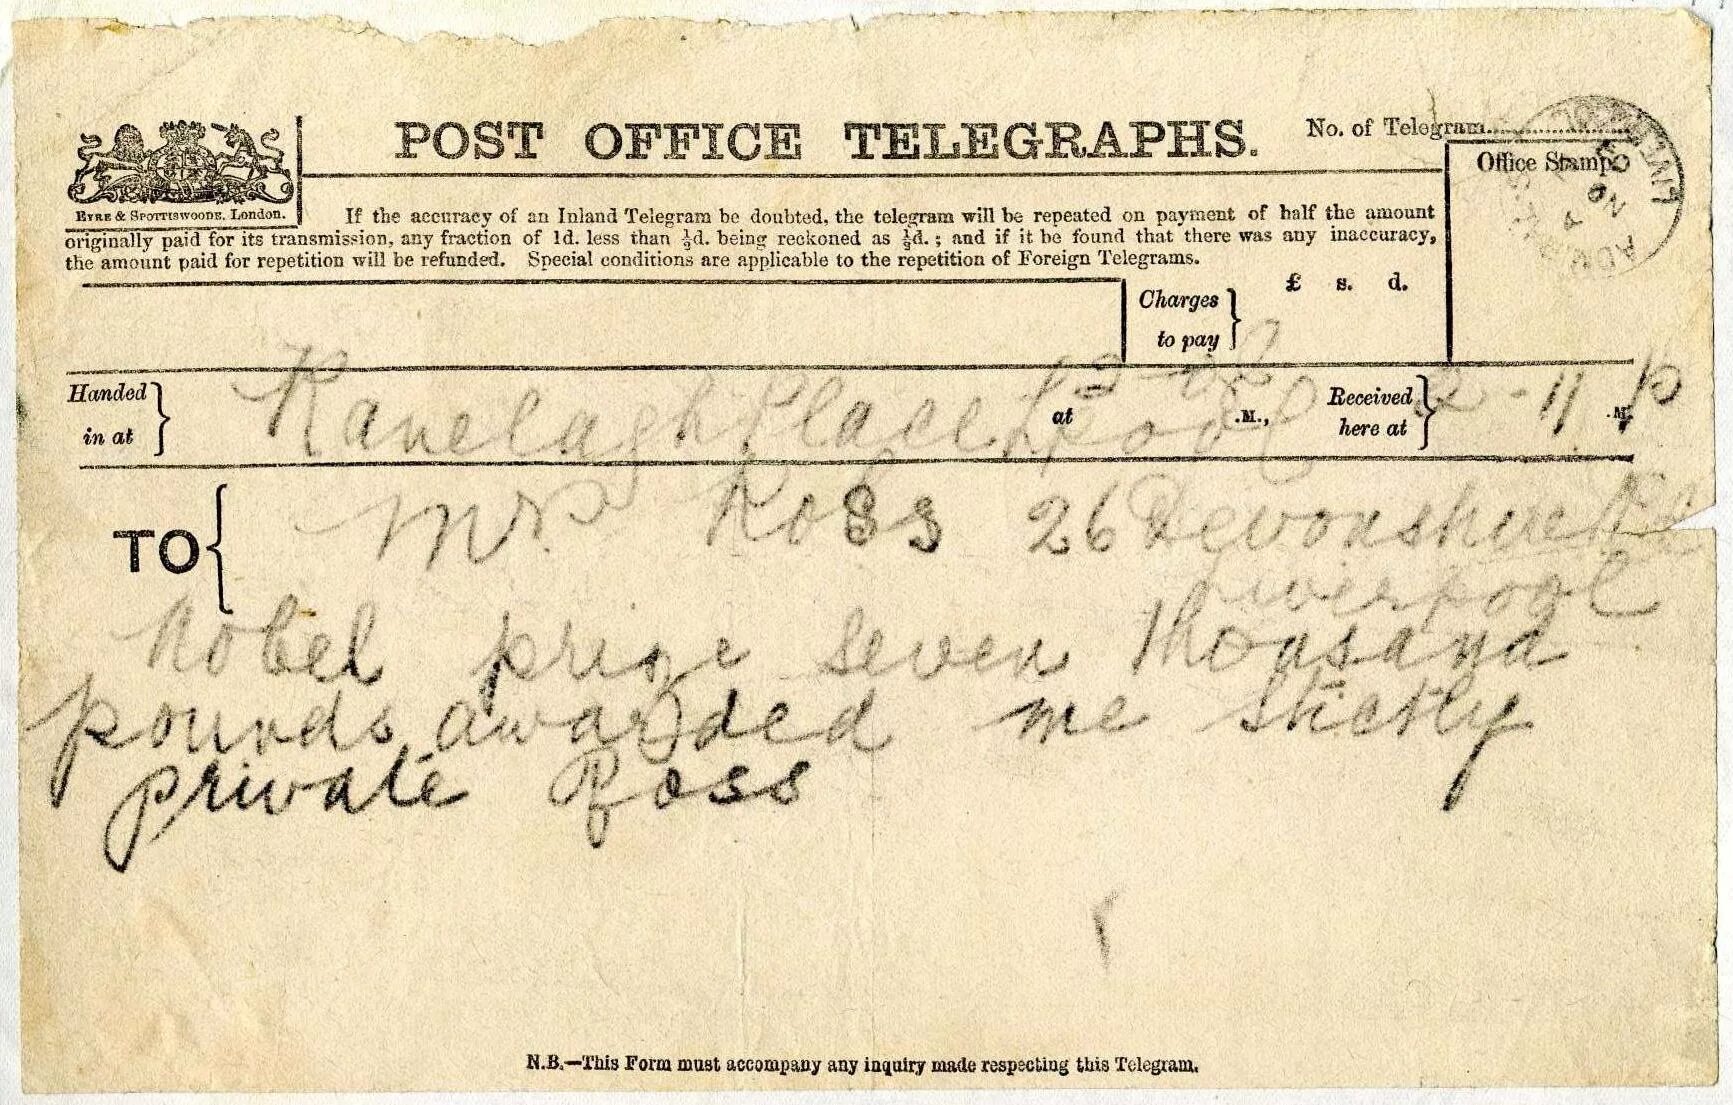 POST OFFICE TELEGRAPHS.
No. of Telegram
Office Stamp.
EYRE & SPOTTISWOODE, London.
If the accuracy of an Inland Telegram be doubted, the telegram will be repeated on payment of half the amount
originally paid for its transmission, any fraction of 1d. less than ½d. being reckoned as ½d.; and if it be found that there was any inaccuracy,
the amount paid for repetition will be refunded. Special conditions are applicable to the repetition of Foreign Telegrams.
Charges to pay } £ s. d.
Handed in at } Ranelagh Place Lpool at .M., Received here at } 2-11 P .M.
TO { Mrs Ross 26 Devonshire Rd
Liverpool
Nobel prize seven thousand
pounds awarded me stictly
private Ross
N.B.—This Form must accompany any inquiry made respecting this Telegram.